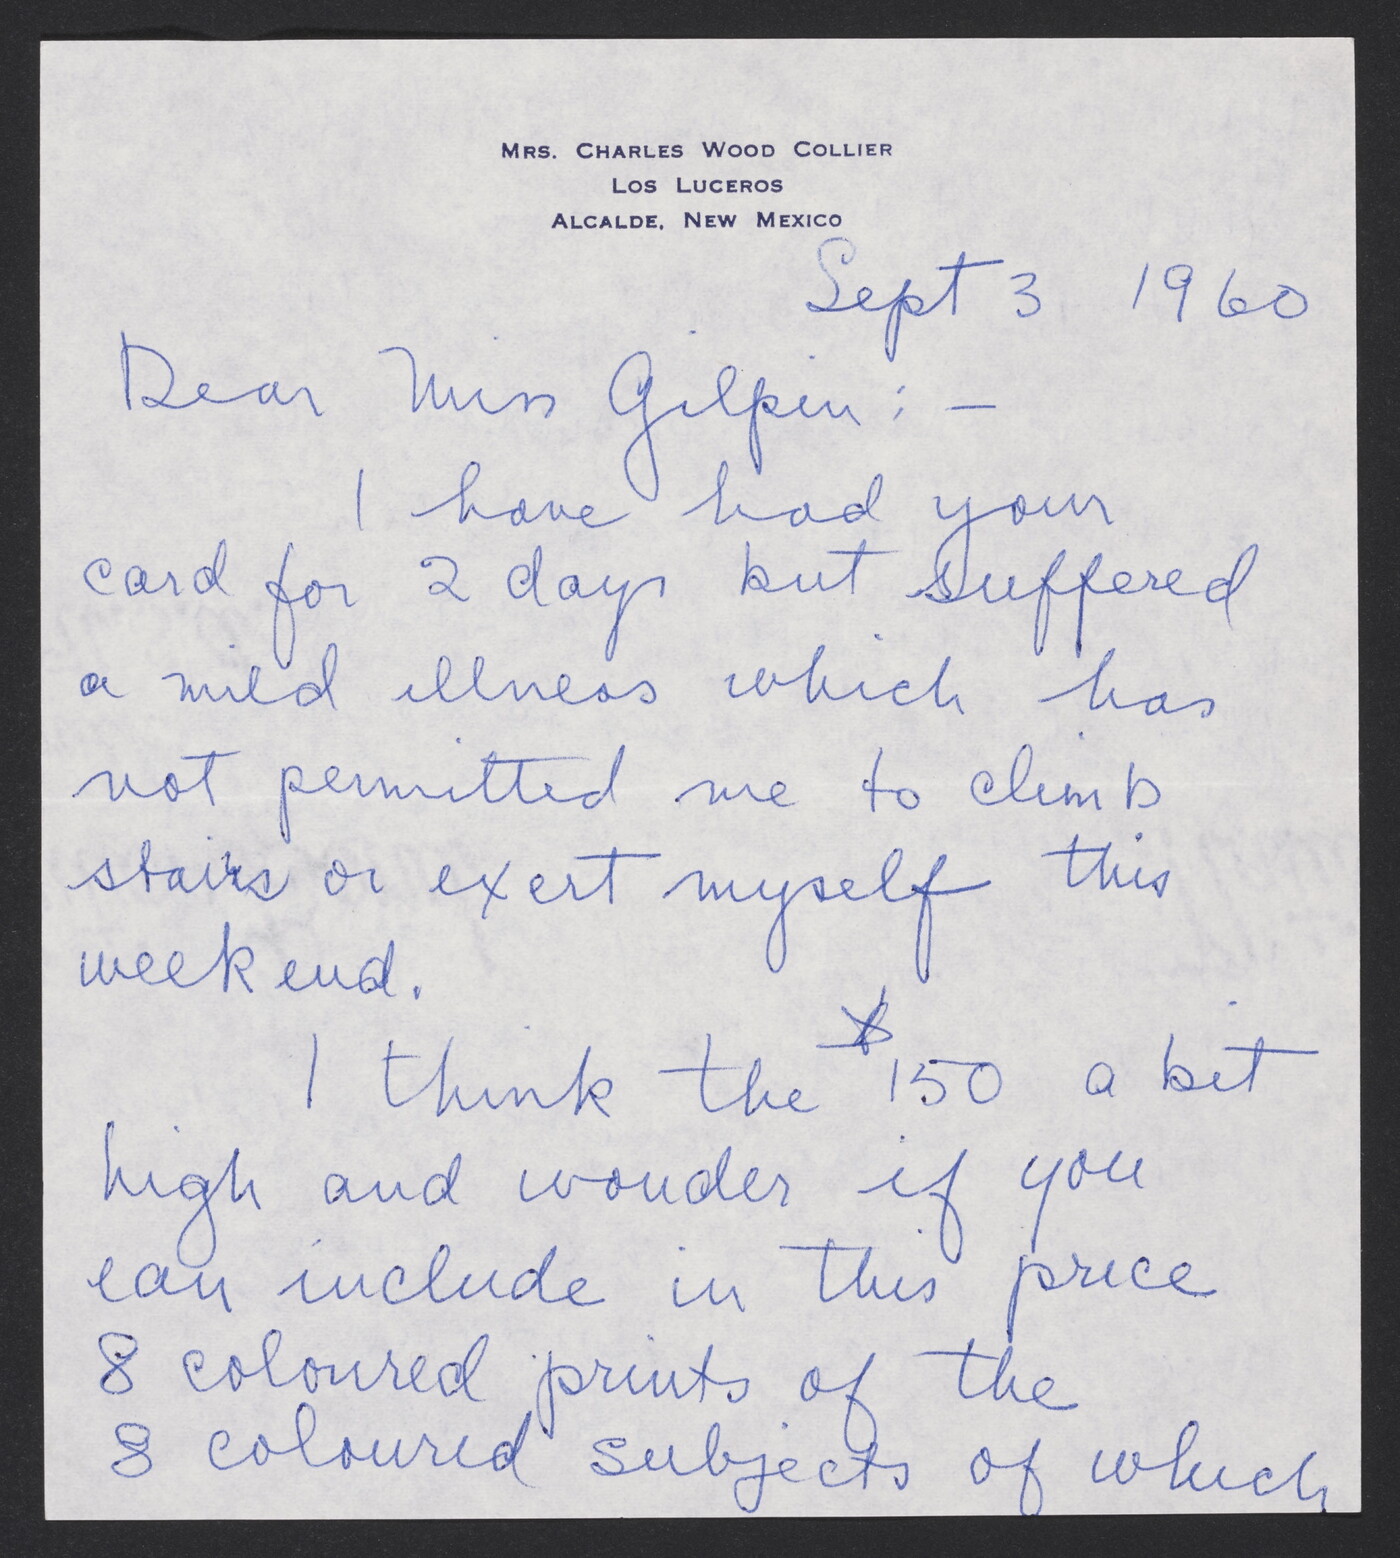 Mrs. Charles Wood Collier
Los Luceros
Alcalde, New Mexico
Sept 3 1960
Dear Miss Gilpin: —
I have had your
card for 2 days but suffered
a mild illness which has
not permitted me to climb
stairs or exert myself this
weekend.
I think the $150 a bit
high and wonder if you
can include in this price
8 coloured prints of the
8 coloured subjects of which